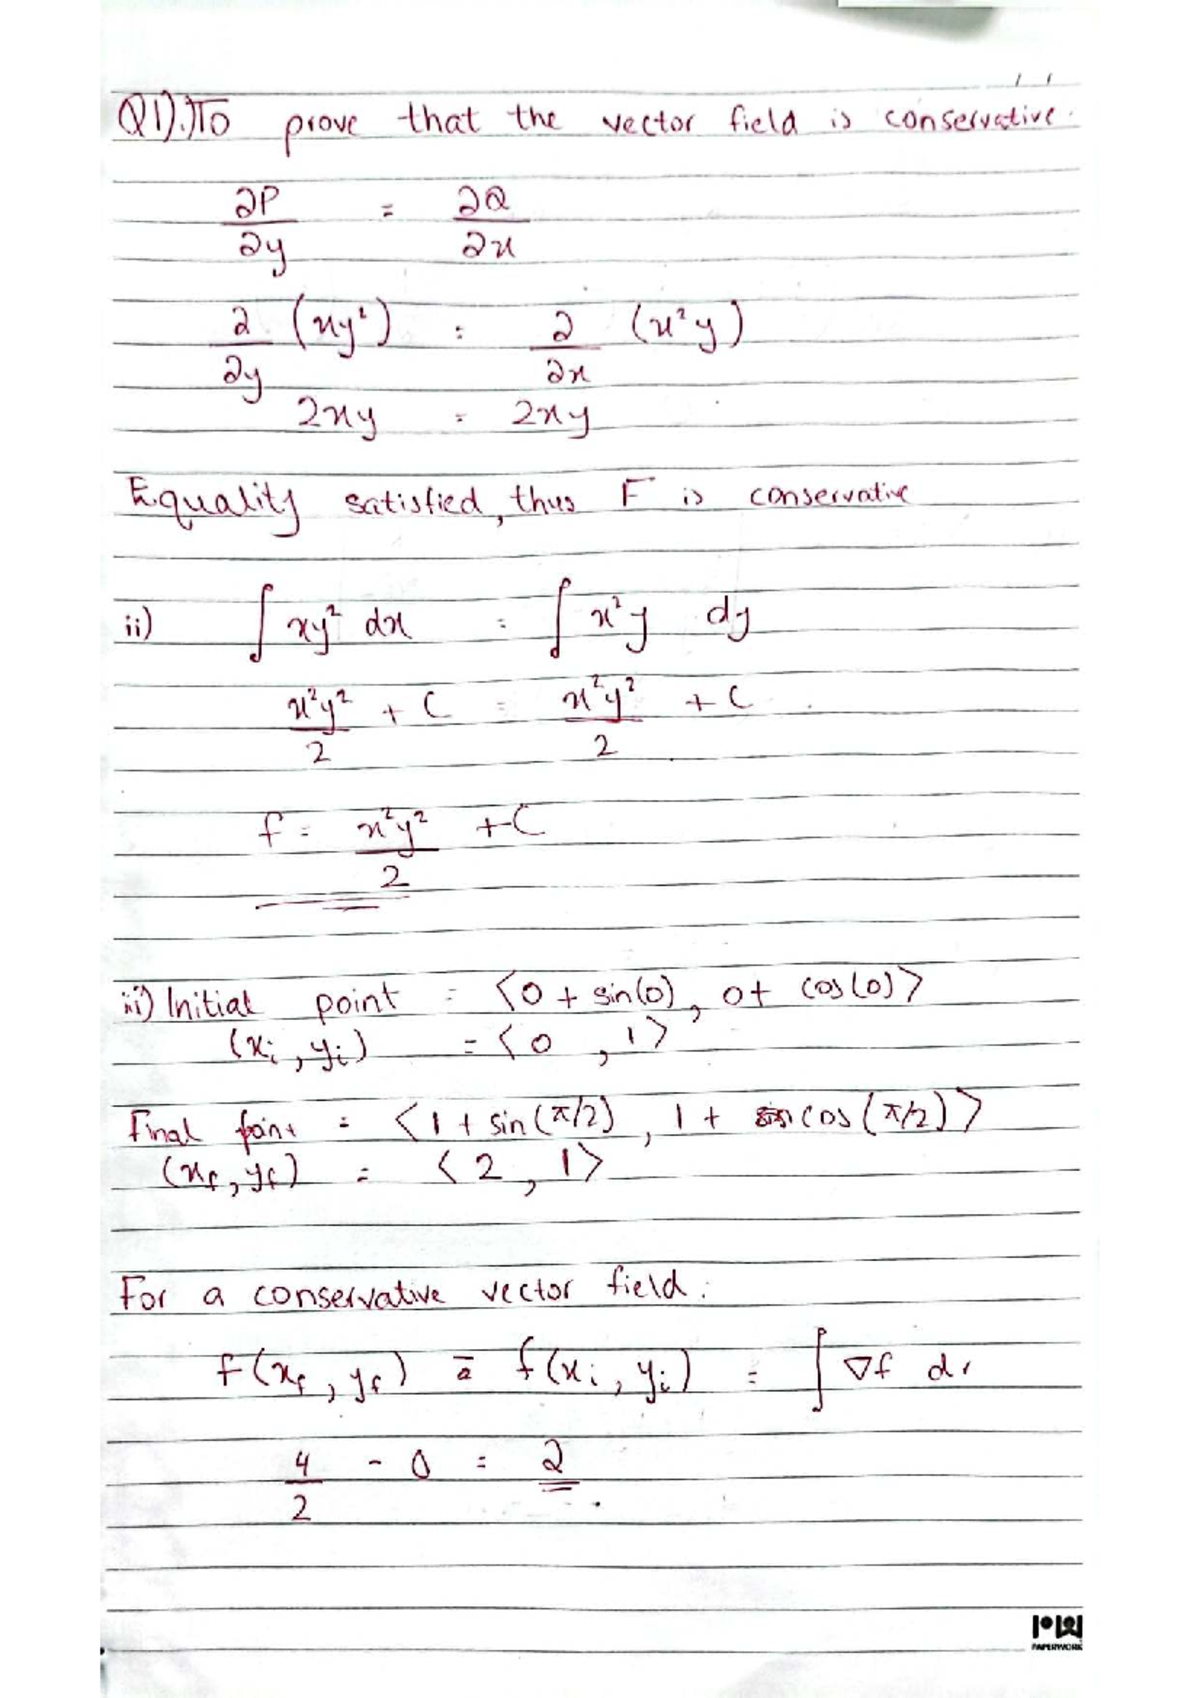 Q1).i) To prove that the vector field is conservative.
∂P/∂y = ∂Q/∂x
∂/∂y (xy²) = ∂/∂x (x²y)
2xy = 2xy
Equality satisfied, thus F is conservative
ii) ∫ xy² dx = ∫ x²y dy
x²y²/2 + C = x²y²/2 + C
f = x²y²/2 + C
iii) Initial point = <0 + sin(0), 0 + cos(0)>
(xi, yi) = <0, 1>
Final point = <1 + sin(π/2), 1 + cos(π/2)>
(xf, yf) = <2, 1>
For a conservative vector field:
f(xf, yf) - f(xi, yi) = ∫ ∇f dr
4/2 - 0 = 2
PW
PAPERWORK